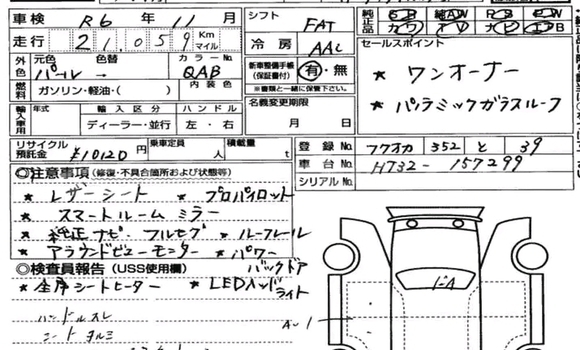 車検 R6 年 11 月
シフト FAT
純正品
走行 21,059 Km マイル
冷房 AAC
セールスポイント
外色 元色 パール 色替 → カラーNo. QAB
内装色
新車整備手帳 (保証書付) 有・無
※書類と一緒に保管下さい。
★ ワンオーナー
燃料 ガソリン・軽油・( )
名義変更期限
月 日
★ パノラミックガラスルーフ
輸入車用 年式 輸入区分 ハンドル
ディーラー・並行 左・右
リサイクル預託金 ¥10120 乗車定員 人 積載量 t
登録No. フクオカ 352 と 39
車台No. H T32 - 157299
シリアルNo.
◎注意事項(修復・不具合箇所および状態等)
★ レザーシート ★ プロパイロット
★ スマートルームミラー
★ 純正ナビ・フルセグ ★ ルーフレール
★ アラウンドビューモニター ★ パワーバックドア
◎検査員報告(USS使用欄)
★ 全席シートヒーター ★ LEDヘッドライト
ハンドルスレ
シートヨゴレ
A-1